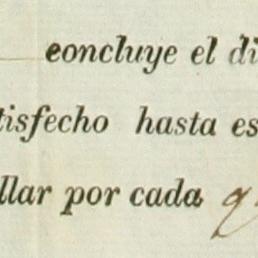 concluye el di
tisfecho hasta es
llar por cada